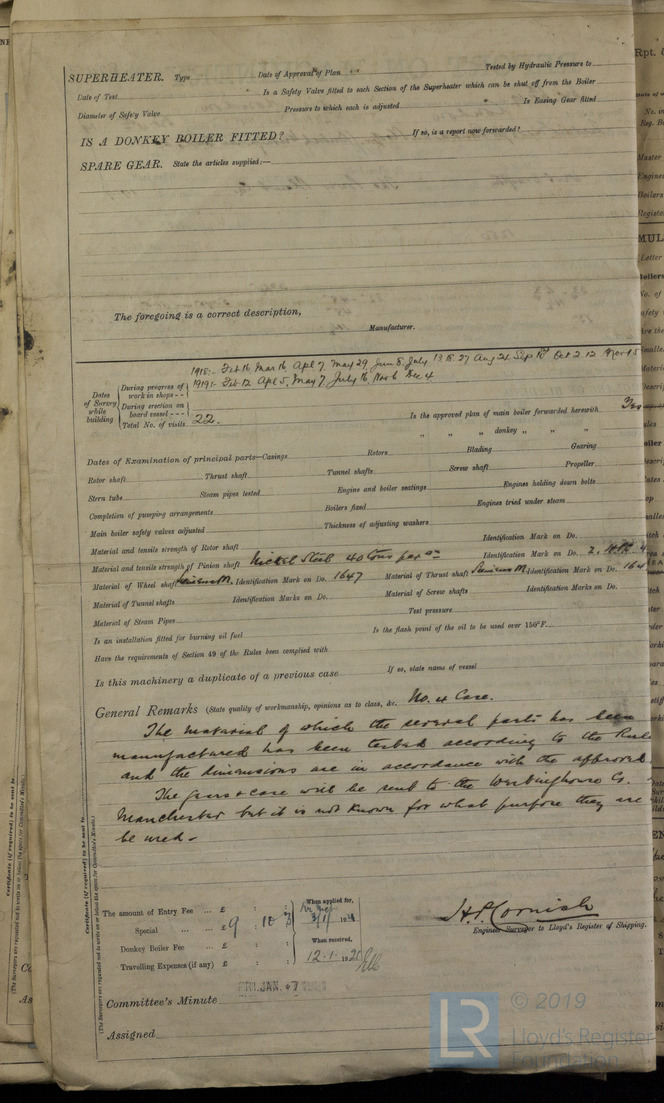 SUPERHEATER. Type Date of Approval of Plan Tested by Hydraulic Pressure to
Date of Test Is a Safety Valve fitted to each Section of the Superheater which can be shut off from the Boiler
Diameter of Safety Valve Pressure to which each is adjusted Is Easing Gear fitted
IS A DONKEY BOILER FITTED? If so, is a report now forwarded?
SPARE GEAR. State the articles supplied:—
The foregoing is a correct description,
Manufacturer.
Dates of Survey while building
During progress of work in shops - - 1918:- Feb 16 Mar 16 Apl 7 May 29 Jun 8 July 13 18 27 Aug 21 Sep 18 Oct 2 12 Nov 15
1919:- Feb 12 Apl 5, May 7 July 16 Nov 6 Dec 4
During erection on board vessel - - -
Total No. of visits 22. Is the approved plan of main boiler forwarded herewith
" " " donkey " " "
Dates of Examination of principal parts—Casings Rotors Blading Gearing
Rotor shaft Thrust shaft Tunnel shafts Screw shaft Propeller
Stern tube Steam pipes tested Engine and boiler seatings Engines holding down bolts
Completion of pumping arrangements Boilers fixed Engines tried under steam
Main boiler safety valves adjusted Thickness of adjusting washers
Material and tensile strength of Rotor shaft Identification Mark on Do.
Material and tensile strength of Pinion shaft Nickel Steel 40 tons per Identification Mark on Do.
Material of Wheel shaft Siemens M. Identification Mark on Do. 1647 Material of Thrust shaft Siemens M. Identification Mark on Do. 164
Material of Tunnel shafts Identification Marks on Do. Material of Screw shafts Identification Marks on Do.
Material of Steam Pipes Test pressure
Is an installation fitted for burning oil fuel Is the flash point of the oil to be used over 150°F.
Have the requirements of Section 49 of the Rules been complied with
Is this machinery a duplicate of a previous case If so, state name of vessel
General Remarks (State quality of workmanship, opinions as to class, &c. No. 4 Case.
The material of which the several parts has been
manufactured has been tested according to the Rule
and the dimensions are in accordance with the approved
The gears & case will be sent to the Westinghouse Co.
Manchester but it is not known for what purpose they are
be used -
The amount of Entry Fee ... £ : : When applied for,
Special ... ... £ 9 : 10
Donkey Boiler Fee ... £ : : When received,
Travelling Expenses (if any) £ : : 12.1.1920
H.P. Cornish
Engineer Surveyor to Lloyd's Register of Shipping.
Committee's Minute FRI. JAN. 7
Assigned
LR © 2019
Lloyd's Register
Foundation